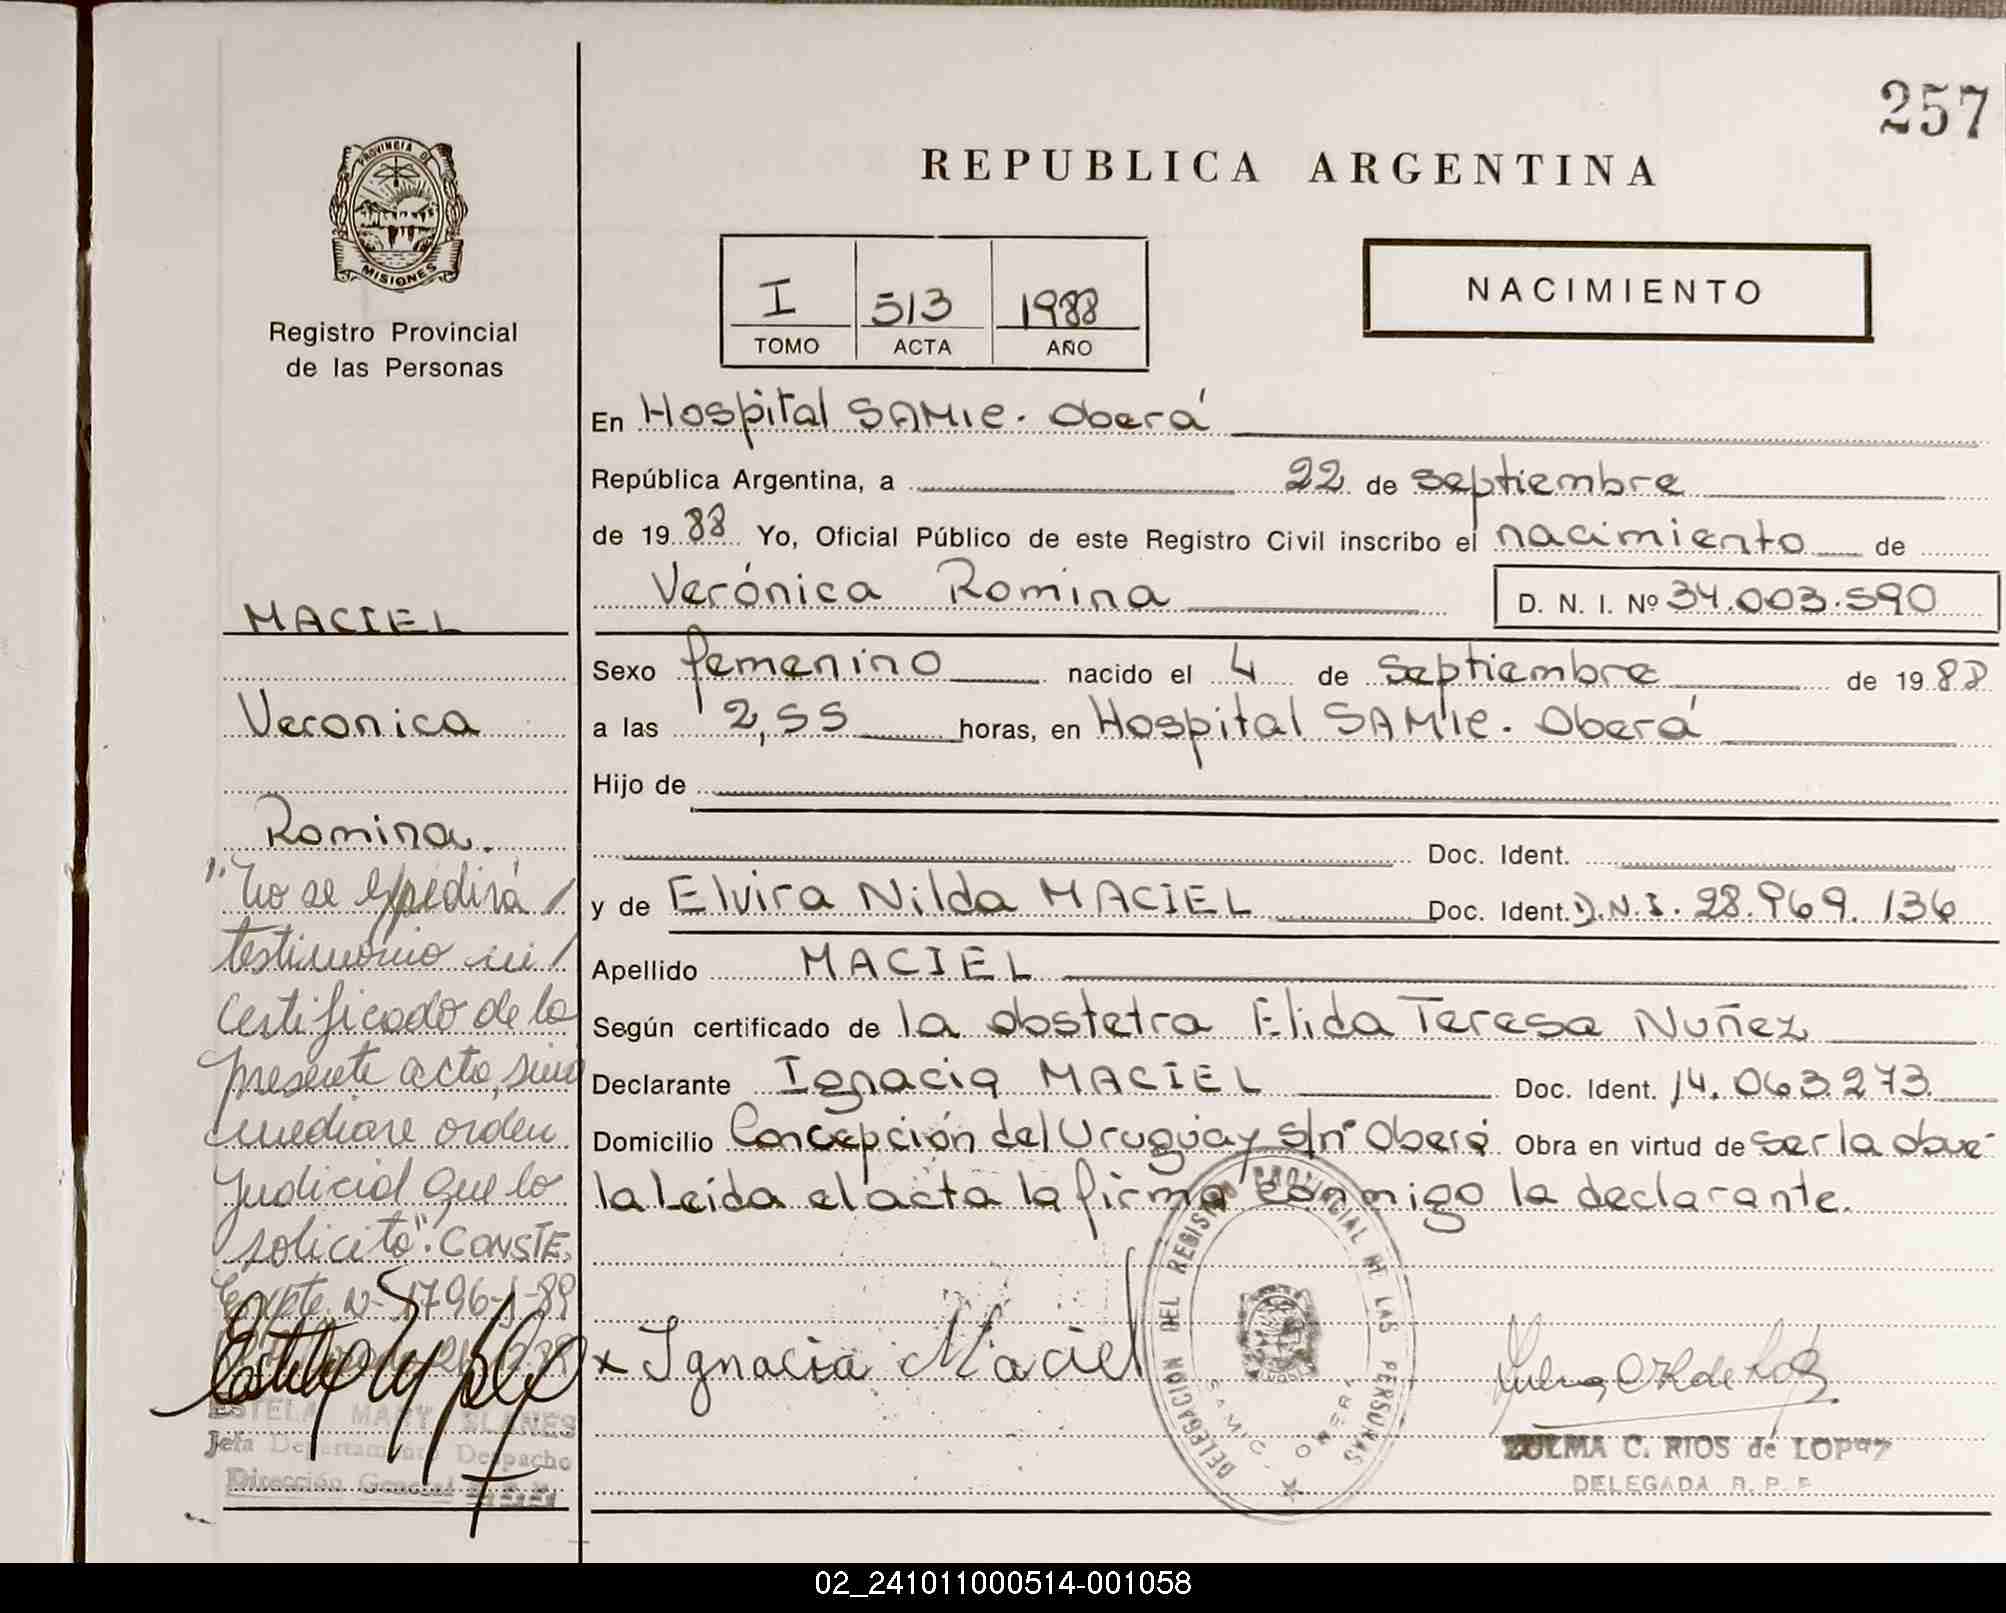 257
REPUBLICA ARGENTINA
PROVINCIA DE
MISIONES
Registro Provincial
de las Personas
I 513 1988
TOMO ACTA AÑO
NACIMIENTO
En Hospital SAMIC. Oberá
República Argentina, a 22 de septiembre
de 19 88 Yo, Oficial Público de este Registro Civil inscribo el nacimiento de
Verónica Romina D. N. I. Nº 34.003.590
MACIEL
Sexo femenino nacido el 4 de septiembre de 19 88
Veronica
a las 2,55 horas, en Hospital SAMIC. Oberá
Hijo de
Romina.
Doc. Ident.
y de Elvira Nilda MACIEL Doc. Ident. D.N.I. 28.969.136
Apellido MACIEL
Según certificado de la obstetra Elida Teresa Nuñez
Declarante Ignacia MACIEL Doc. Ident. 14.063.273.
Domicilio Concepción del Uruguay s/nº Oberá Obra en virtud de ser la abue-
la Leida el acta la firma conmigo la declarante.
"No se expedirá
testimonio ni
certificado de la
presente acta, sino
mediare orden
judicial que lo
solicite". CONSTE.
Expte. Nº 1796-J-89
x Ignacia Maciel
DELEGACION DEL REGISTRO PROVINCIAL DE LAS PERSONAS
SAMIC. OBERA
ESTELA MARY BLANES
Jefa Departamento Despacho
Dirección General
ZULMA C. RIOS de LOPEZ
DELEGADA R. P. P.
02_241011000514-001058